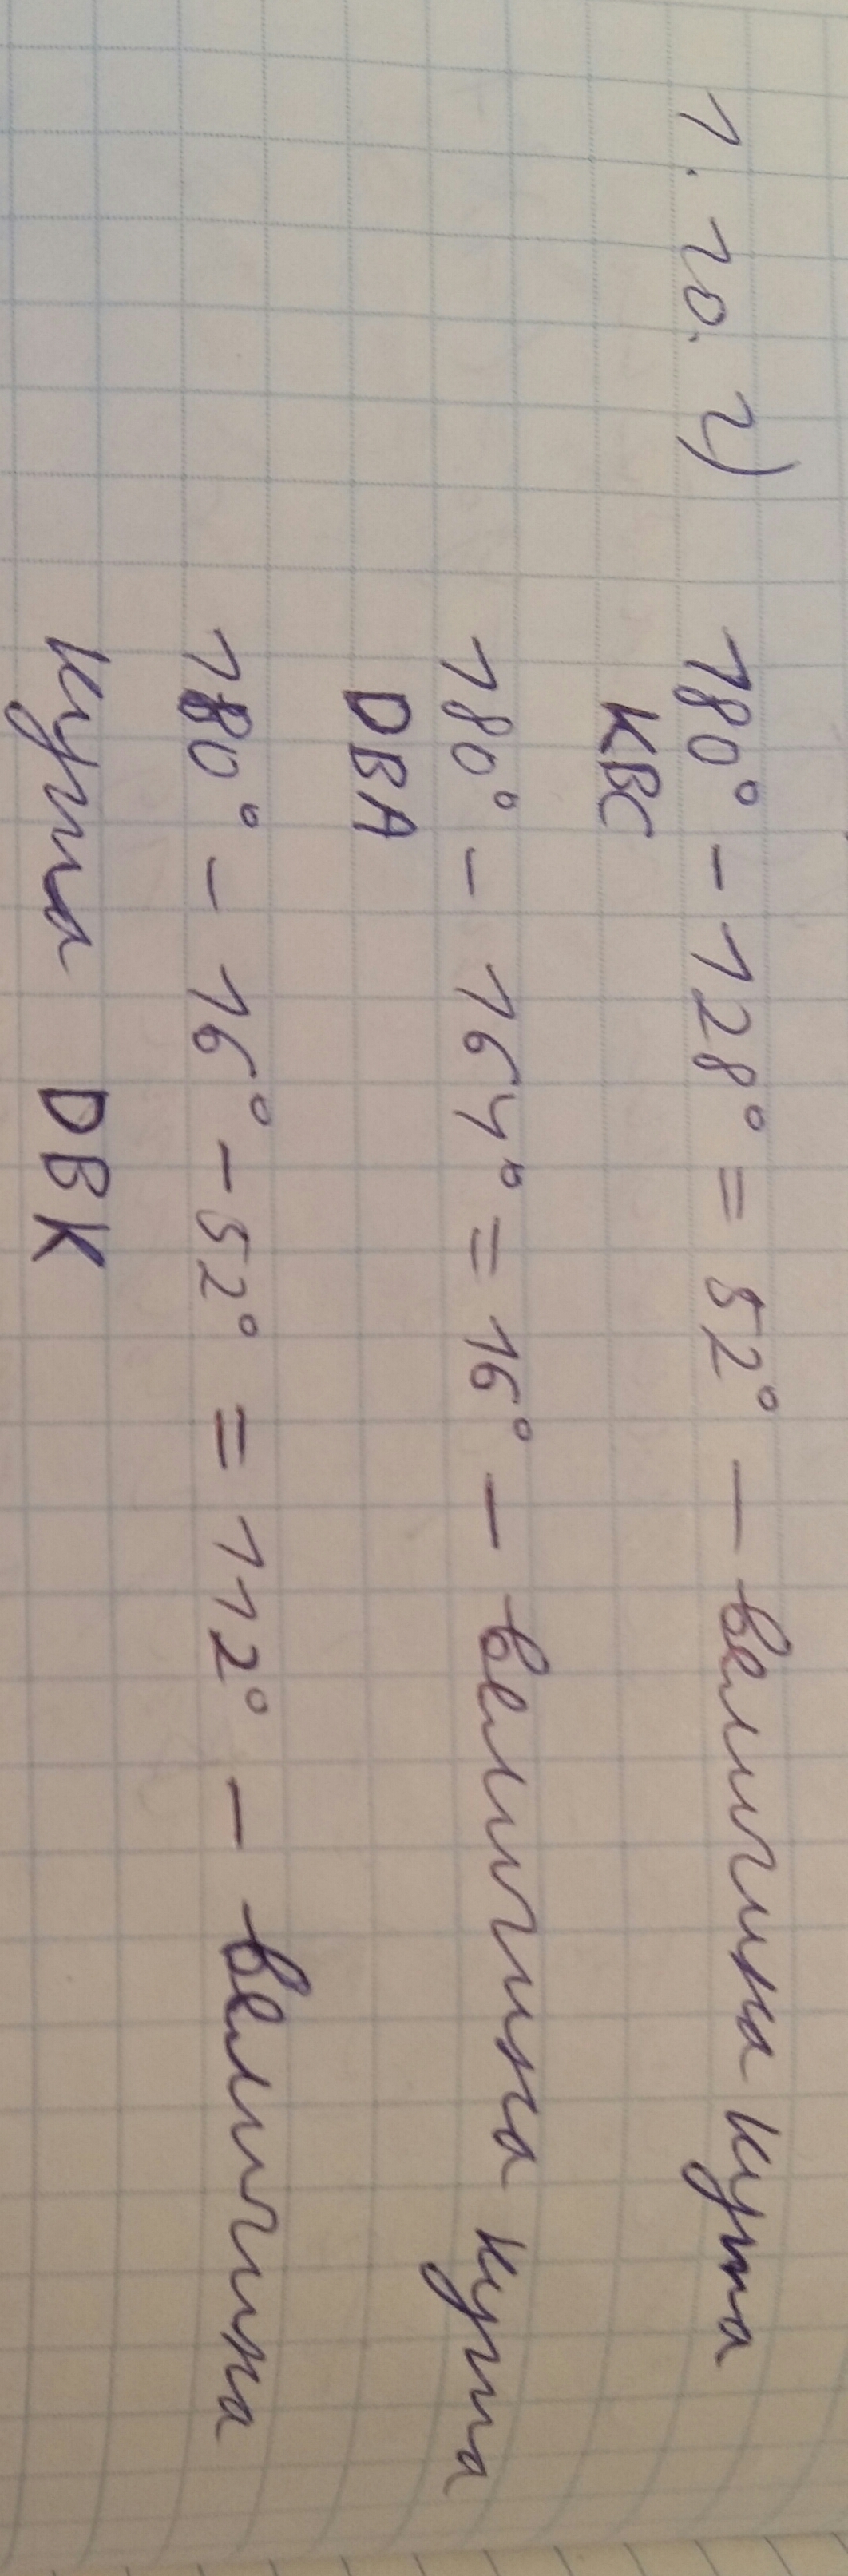 1.20. 2) 180° - 128° = 52° - величина кута
KBC
180° - 164° = 16° - величина кута
DBA
180° - 16° - 52° = 112° - величина
кута DBK